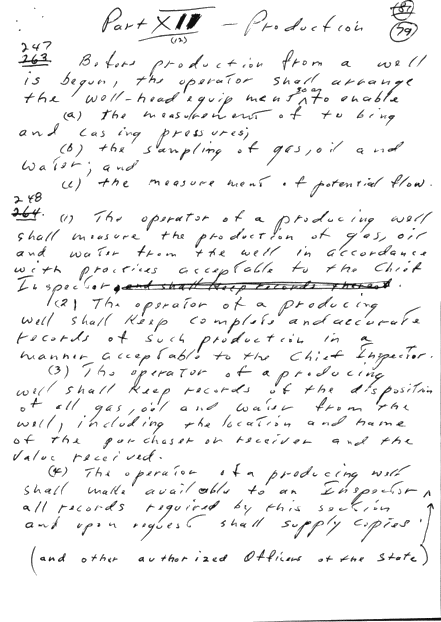 Part XII — Production
(12)
181
79
247
263 Before production from a well
is begun, the operator shall arrange
the well-head equipment so as to enable
(a) the measurement of tubing
and casing pressures;
(b) the sampling of gas, oil and
water; and
(c) the measurement of potential flow.
248
264. (1) The operator of a producing well
shall measure the production of gas, oil
and water from the well in accordance
with practices acceptable to the Chief
Inspector and shall keep records thereof.
(2) The operator of a producing
well shall keep complete and accurate
records of such production in a
manner acceptable to the Chief Inspector.
(3) The operator of a producing
well shall keep records of the disposition
of all gas, oil and water from the
well, including the location and name
of the purchaser or receiver and the
value received.
(4) The operator of a producing well
shall make available to an Inspector ^
all records required by this section
and upon request shall supply copies.
(and other authorized Officers of the State)